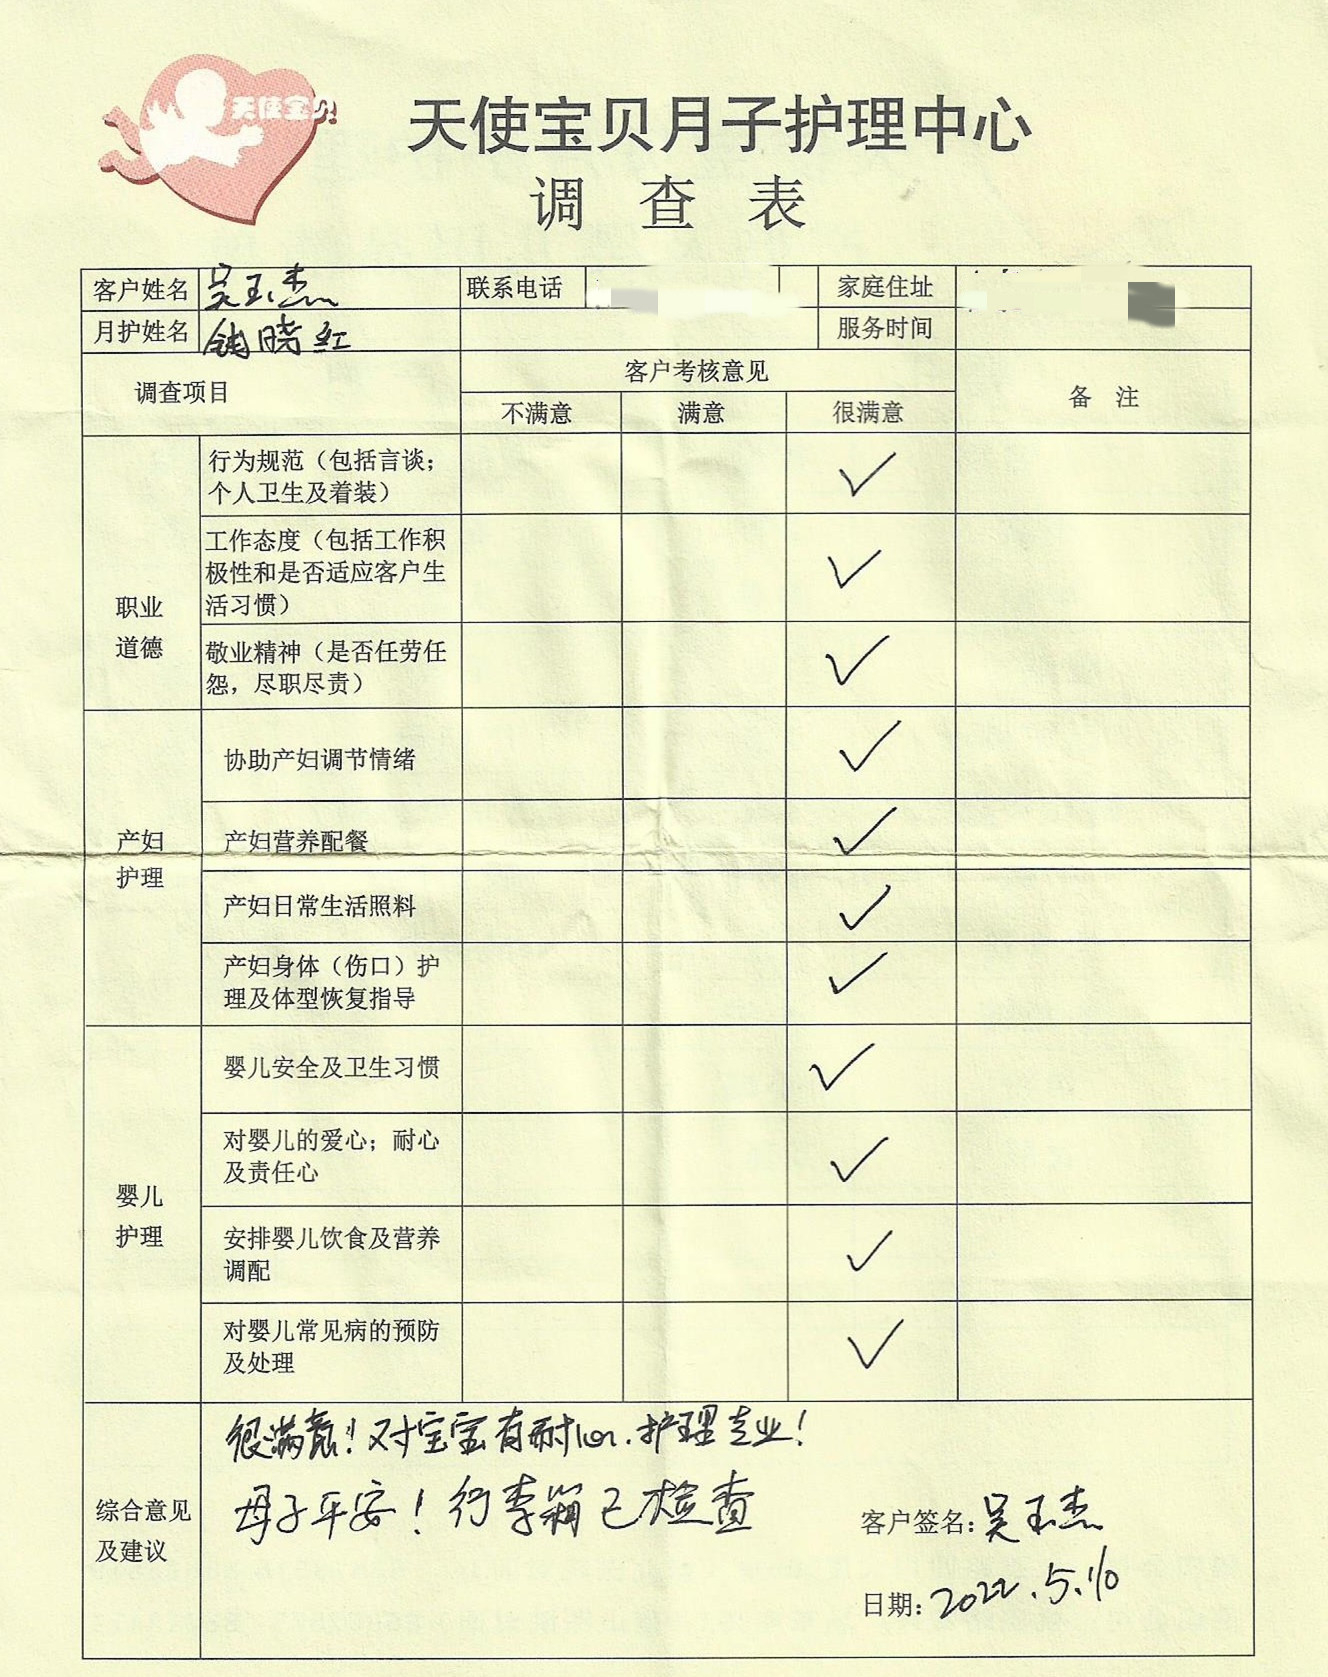 天使宝贝
天使宝贝月子护理中心
调 查 表
客户姓名 吴玉杰 联系电话 家庭住址
月护姓名 晓红 服务时间
调查项目 客户考核意见 备 注
不满意 满意 很满意
职业
道德
行为规范（包括言谈；
个人卫生及着装） ✓
工作态度（包括工作积
极性和是否适应客户生
活习惯） ✓
敬业精神（是否任劳任
怨，尽职尽责） ✓
产妇
护理
协助产妇调节情绪 ✓
产妇营养配餐 ✓
产妇日常生活照料 ✓
产妇身体（伤口）护
理及体型恢复指导 ✓
婴儿
护理
婴儿安全及卫生习惯 ✓
对婴儿的爱心；耐心
及责任心 ✓
安排婴儿饮食及营养
调配 ✓
对婴儿常见病的预防
及处理 ✓
综合意见
及建议
很满意！对宝宝有耐心.护理专业！
母子平安！行李箱已检查
客户签名：吴玉杰
日期：2022.5.10